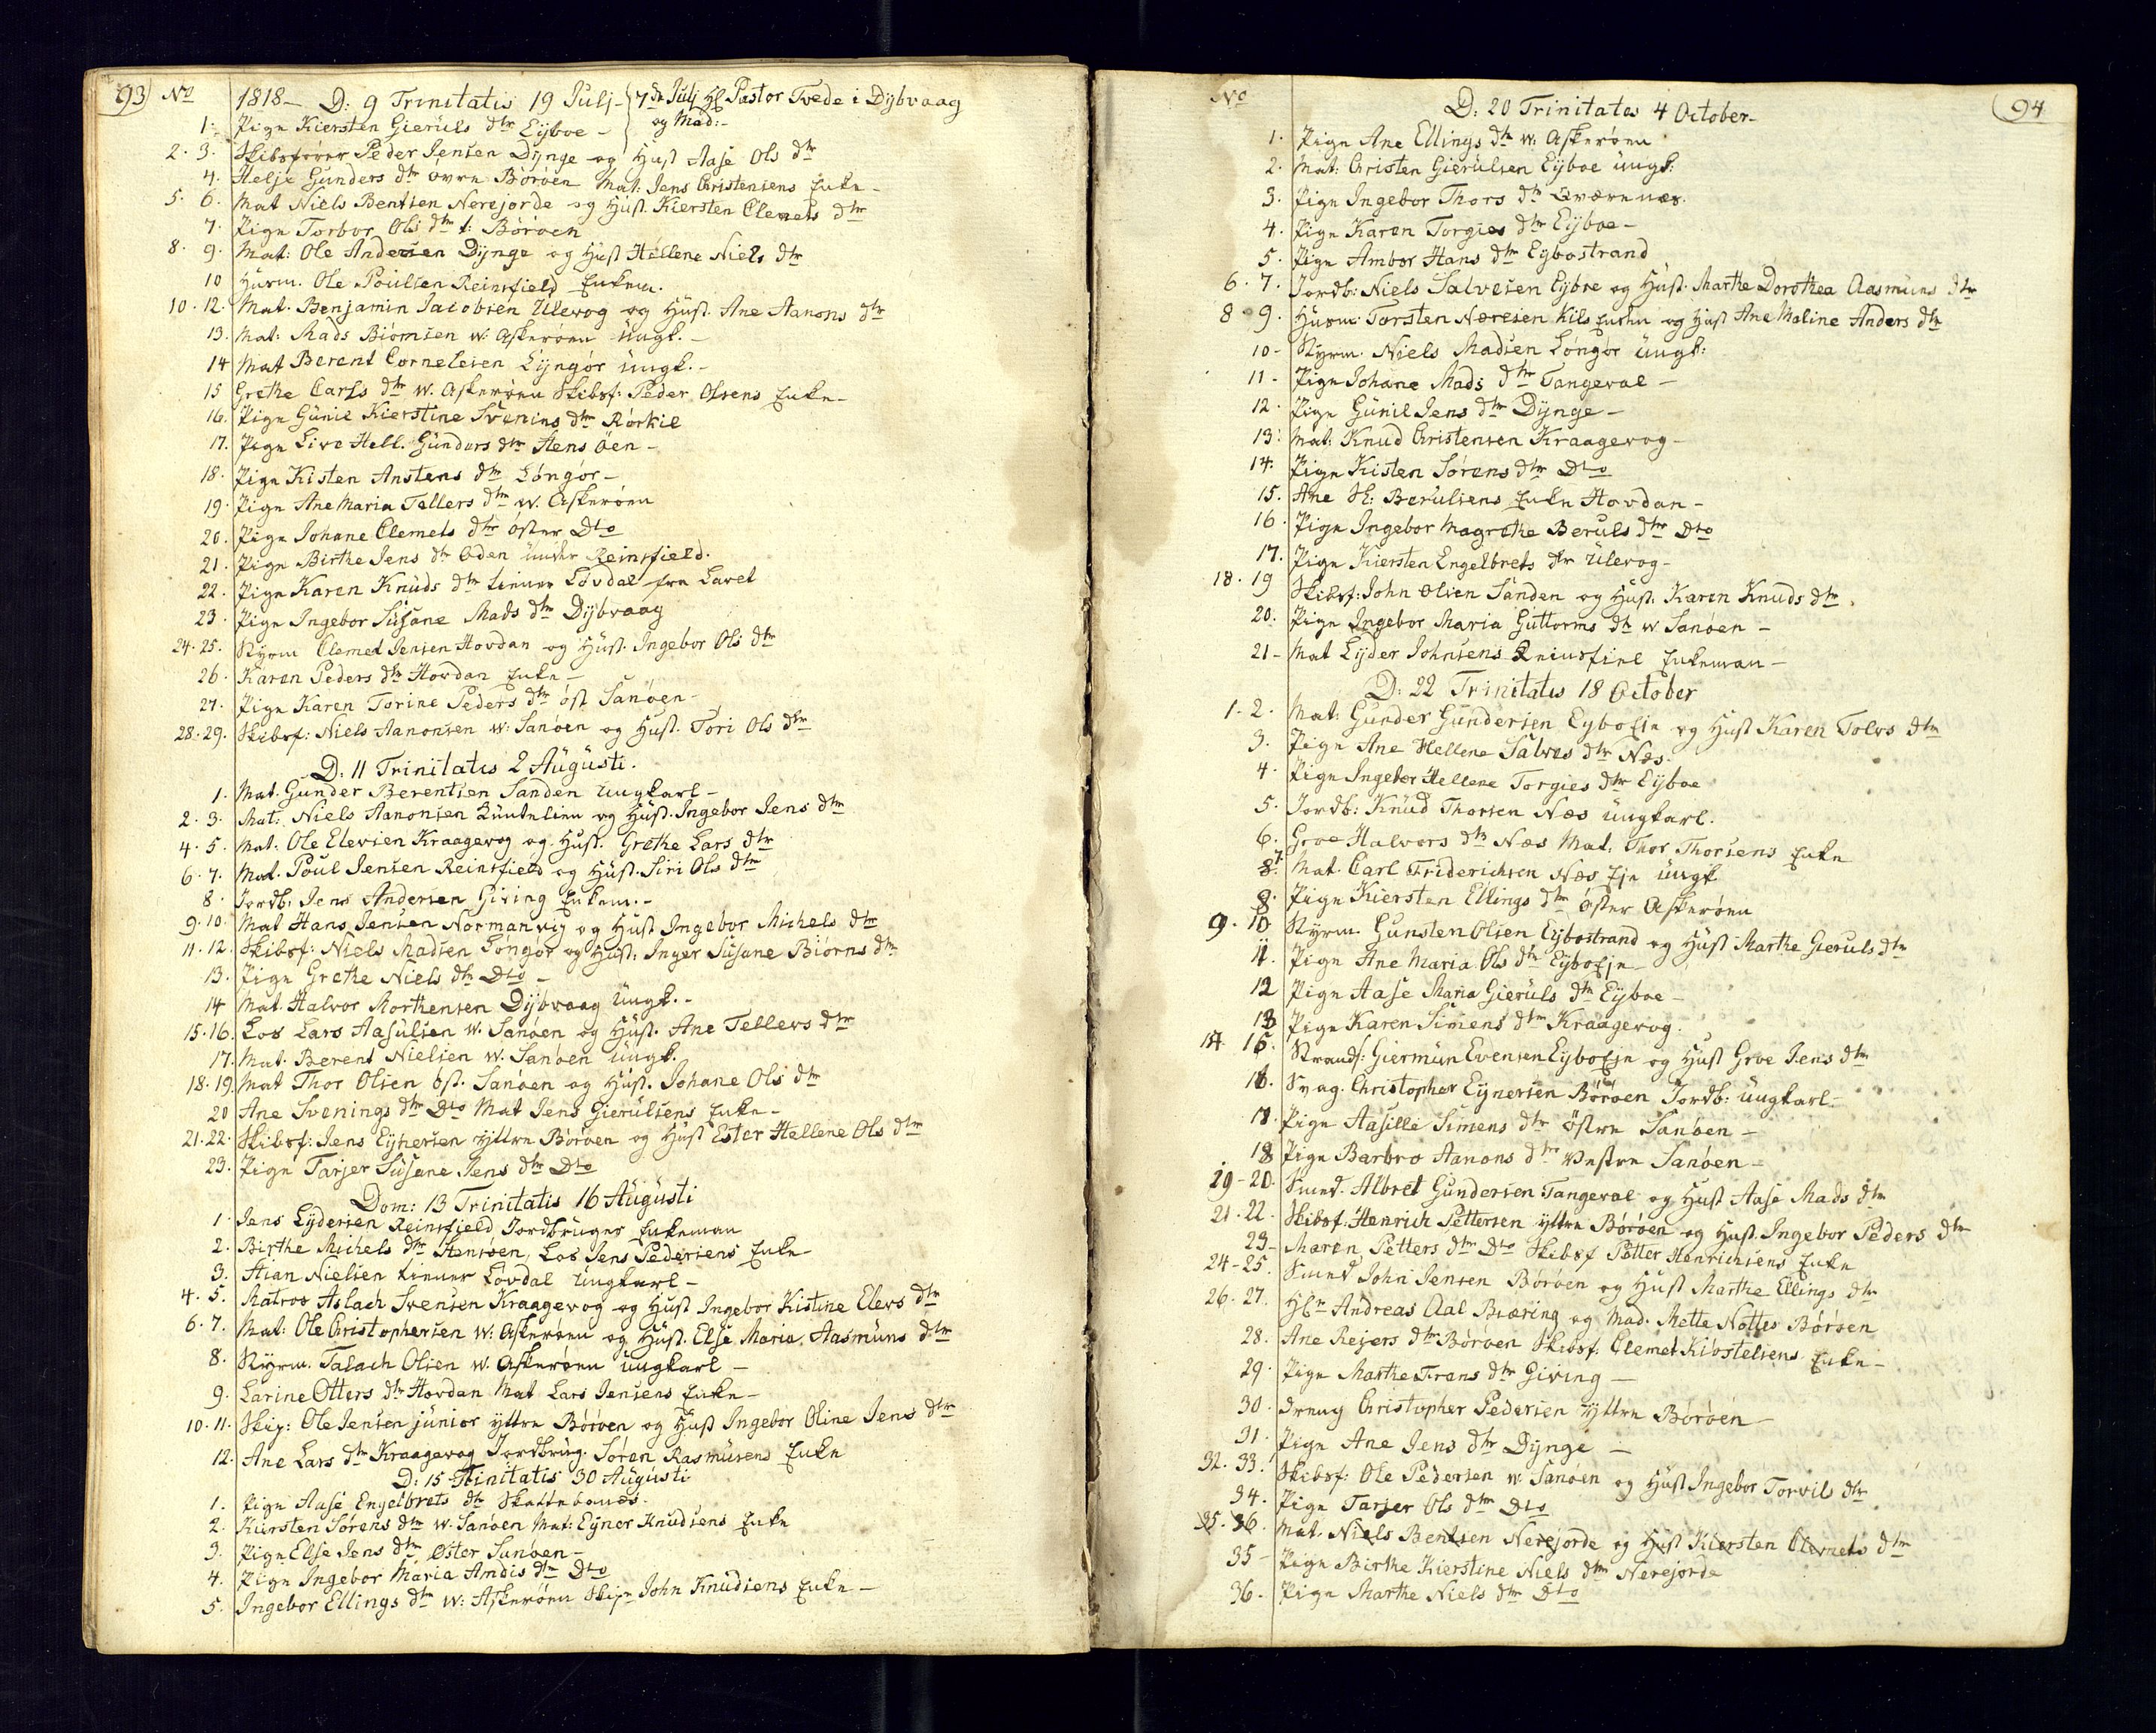 93) No 1818 - D: 9 Trinitatis 19 Julj - 7de Julj Hl Pastor Tvede i Dybvaag
og Mad:-
1. Pige Kiersten Gieruls dtr Eijboe -
2. 3. Skibsfører Peder Jensen Dynge og Hust Aase Ols dtr
4. Helje Gunders dtr øvre Børøen Mat: Jens Christensens Enke -
5. 6. Mat Niels Bentsen Nerejorde og Hust. Kiersten Clemets dtr
7. Pige Torbor Ols dtr t: Børøen
8. 9. Mat: Ole Andersen Dynge og Hust Hellene Niels dtr
10 Husm. Ole Poulsen Reinsfield Enkem.
10. 12. Mat. Benjamin Jacobsen Ulevog og Hust. Ane Aanons dtr
13. Mat: Mads Biørnsen w: Askerøen Ungk. -
14 Mat Berent Cornelesen Lyngør Ungk. -
15 Grethe Carls dtr w. Askerøen Skibsf: Peder Olsens Enke -
16. Pige Gunil Kierstine Svenins dtr Rørkil
17. Pige Live Hell. Gunders dtr Stensøen -
18. Pige Kisten Anstens dtr Løngør -
19. Pige Ane Maria Tellers dtr w. Askerøen
20. Pige Johane Clemets dtr øster Dto
21. Pige Birthe Jens dtr Oden under Reinsfield.
22. Pige Karen Knuds dtr tienner Løvdal fra Laret
23. Pige Ingebor Susane Mads dtr Dybvaag
24. 25. Styrm Clemet Jensen Hovdan og Hust. Ingebor Ols dtr
26. Karen Peders dtr Hovdan Enke -
27. Pige Karen Torine Peders dtr øst Sanøen -
28. 29. Skibsf: Niels Aanonsen w: Sanøen og Hust. Tori Ols dtr
D: 11 Trinitatis 2 Augusti.
1. Mat. Gunder Berentsen Sanden Ungkarl -
2. 3. Mat: Niels Aanonsen Runtelien og Hust. Ingebor Jens dtr
4. 5. Mat: Ole Elevsen Kraagevog og Hust. Grethe Lars dtr
6. 7. Mat. Poul Jensen Reinsfield og Hust. Siri Ols dtr
8. Jordb: Jens Andersen Giving Enkem. -
9. 10. Mat Hans Jensen Normanvig og Hust Ingebor Michels dtr
11. 12. Skibsf: Niels Madsen Løngør og Hust. Inger Susane Biørns dtr
13. Pige Grethe Niels dtr Dto -
14 Mat. Halvor Morthensen Dybvaag Ungk. -
15. 16. Los Lars Aasulsen w. Sanøen og Hust. Ane Tellevs dtr
17. Mat. Berent Nielsen w. Sanøen Ungk.
18. 19. Mat Thor Olsen øst. Sanøen og Hust. Johane Ols dtr
20 Ane Svenings dtr Dto Mat Jens Gierulsens Enke -
21. 22. Skibsf: Jens Eynersen Yttre Børøen og Hust Ester Hellene Ols dtr
23. Pige Tarjer Susane Jens dtr Dto
Dom: 13 Trinitatis 16 Augusti
1. Jens Lydersen Reinsfield Jordbruger Enkeman
2. Birthe Michels dtr Stensøen, Los Jens Pedersens Enke -
3. Stian Nielsen tienner Løvdal Ungkarl -
4. 5. Matros Aslach Svensen Kraagevog og Hust Ingebor Kistine Elevs dtr
6. 7. Mat: Ole Christophersen w: Askerøen og Hust. Else Maria Aasmuns dtr
8. Styrm. Talach Olsen w. Askerøen Ungkarl -
9. Larine Otters dtr Hovdan Mat Lars Jensens Enke -
10. 11. Skip: Ole Jensen junior yttre Børøen og Hust Ingebor Oline Jens dtr
12. Ane Lars dtr Kraagevog Jordbrug. Søren Rasmusens Enke
D: 15 Trinitatis 30 Augusti
1. Pige Aase Engelbrets dtr Skattebonæs.
2. Kiersten Sørens dtr w. Sanøen Mat: Eyner Knudsens Enke
3. Pige Else Jens dtr Øster Sanøen -
4. Pige Ingebor Maria Amdis dtr Dto
5. Ingebor Ellings dtr w: Askerøen Skipr John Knudsens Enke -
No D: 20 Trinitates 4 October - (94
1. Pige Ane Ellings dtr w: Askerøen
2. Mat: Christen Gierulsen Eijboe Ungk:
3. Pige Ingebor Thors dtr Qværnnæs.
4. Pige Karen Torgies dtr Eijboe -
5. Pige Ambor Hans dtr Eybostrand
6. 7. Jordb: Niels Salvesen Eyboe og Hust. Marthe Dorothea Aasmuns dtr
8. 9. Husm: Torsten Næresen Kils Enden og Hust Ane Maline Anders dtr
10 - Styrm. Niels Madsen Løngør Ungk:
11 - Pige Johane Mads dtr Tangeval -
12. Pige Gunil Jens dtr Dynge -
13: Mat: Knud Christensen Kraagevog -
14: Pige Kisten Sørens dtr Dto
15. Ane Sl: Berulsens Enke Hovdan -
16. Pige Ingebor Magrethe Beruls dtr Dto
17. Pige Kiersten Engelbrets dtr Ulevog -
18. 19 Skibsf: John Olsen Sanden og Hust. Karen Knuds dtr.
20. Pige Ingebor Maria Guttorms dtr w Sanøen -
21 - Mat Lyder Johnsens Reinsfiel Enkeman -
D: 22 Trinitatis 18 October
1. 2. Mat: Gunder Gundersen Eyboeje og Hust Karen Tolvs dtr
3. Pige Ane Hellene Salves dtr Næs.
4. Pige Ingebor Hellene Torgies dtr Eijboe
5. Jordb: Knud Thorsen Næs Ungkarl.
6. Groe Halvors dtr Næs Mat. Thor Thorsens Enke
7. Mat. Carl Friderichsen Næs Eje Ungk
8. Pige Kiersten Ellings dtr øster Askerøen
9. 10 Styrm. Gunsten Olsen Eybostrand og Hust Marthe Gieruls dtr
11. Pige Ane Maria Ols dtr Eyboeje -
12 Pige Aase Maria Gieruls dtr Eijboe -
13 Pige Karen Simens dtr Kraagevog.
14. 15. Strands: Giermun Evensen Eyboeje og Hust Groe Jens dtr
16. Svag. Christopher Eynersen Børøen Jordb: Ungkarl -
17. Pige Aasille Simens dtr Østre Sanøen -
18 Pige Barbro Aanons dtr Vestre Sanøen -
19 - 20. Smed. Albret Gundersen Tangeval og Hust Aase Mads dtr
21. 22. Skibsf: Henrich Pettersen yttre Børøen og Hust. Ingebor Peders dtr
23 - Maren Petters dtr Dto Skibsf Petter Henrichsens Enke
24 - 25. Smed John Jensen Børøen og Hust Marthe Ellings dtr
26. 27. Hlr Andreas Aal Biæring og Mad. Mette Nottes Børøen
28. Ane Rejers dtr Børøen Skibsf: Clemet Kibstelsens Enke -
29. Pige Marthe Frans dtr Giving -
30. Dreng Christopher Pedersen Yttre Børøen -
31. Pige Ane Jens dtr Dynge -
32. 33. Skibsf: Ole Pedersen w: Sanøen og Hust Ingebor Torvils dtr
34. Pige Tarjer Ols dtr Dto
35. 36. Mat. Niels Bentsen Nerejorde og Hust Kiersten Clemets dtr
35 - Pige Birthe Kierstine Niels dtr Nerejorde
36. Pige Marthe Niels dtr Dto